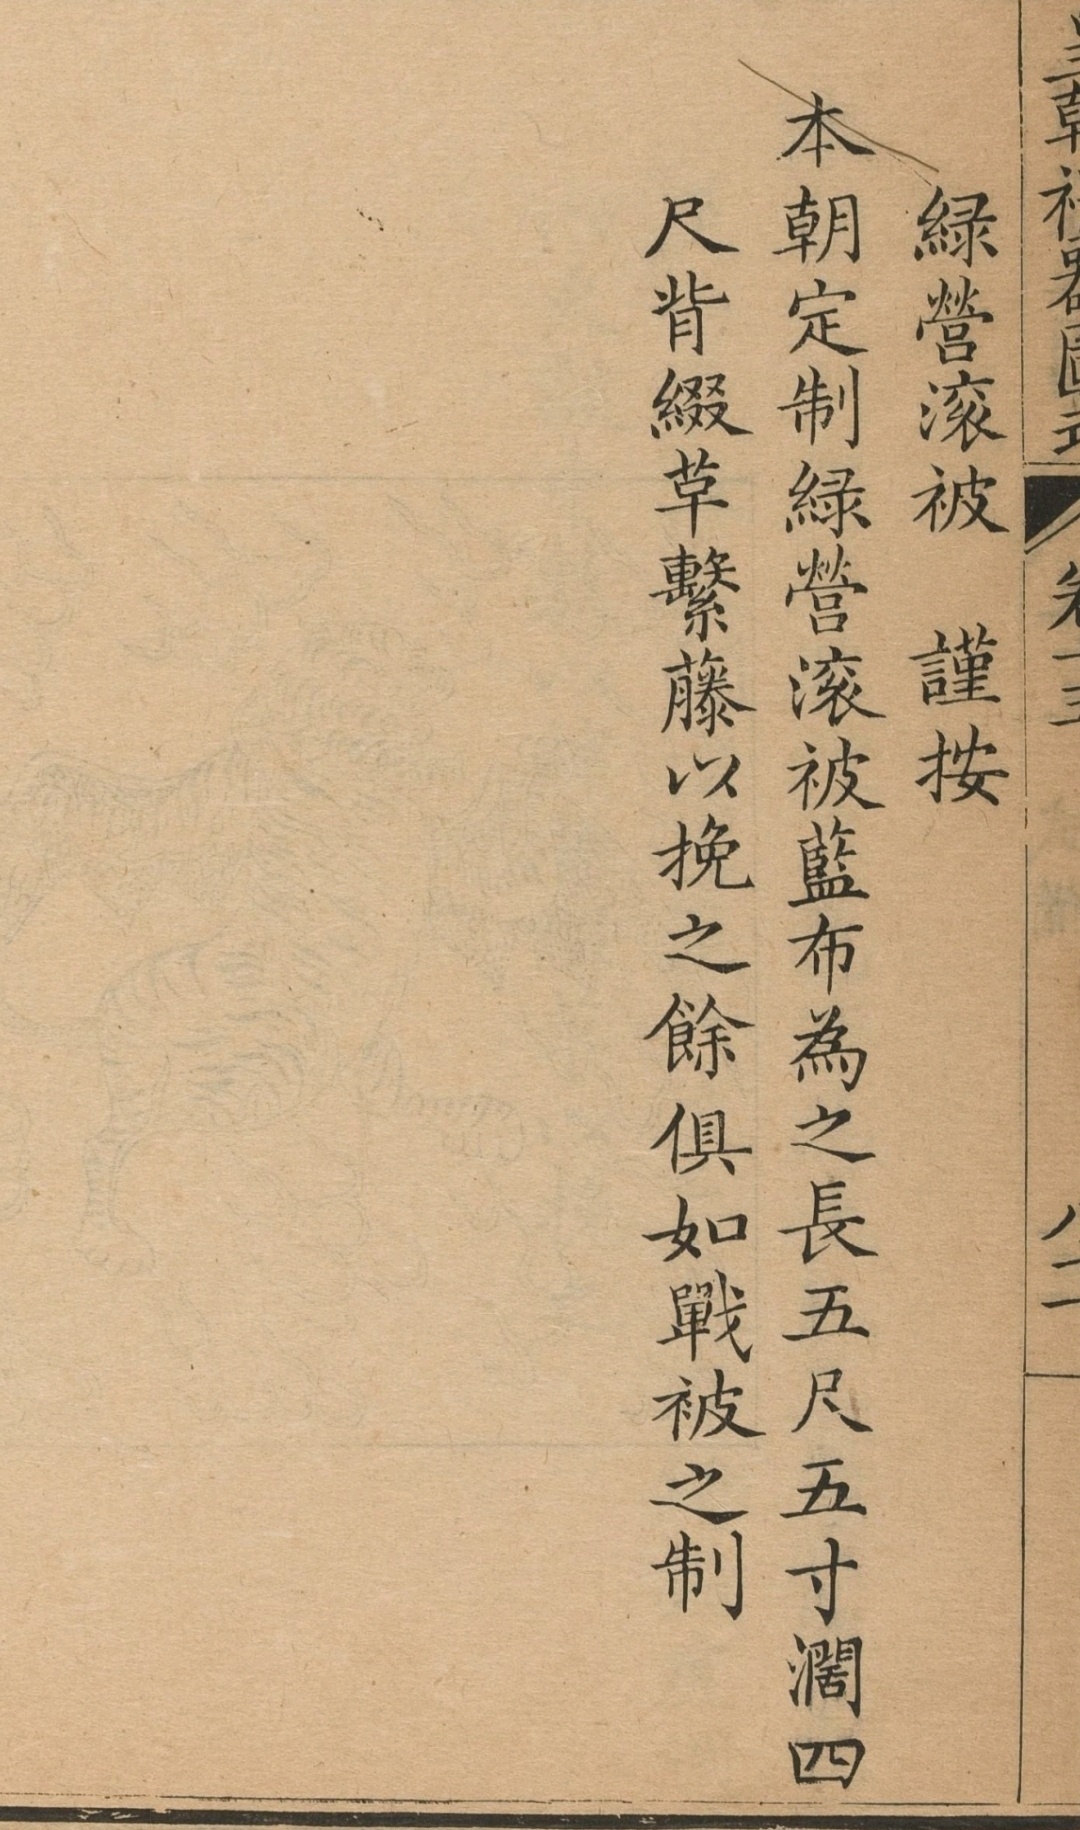 皇朝禮器圖式 卷十五 八二
綠營滚被 謹按
本朝定制綠營滚被藍布為之長五尺五寸濶四
尺背綴草繫藤以挽之餘俱如戰被之制